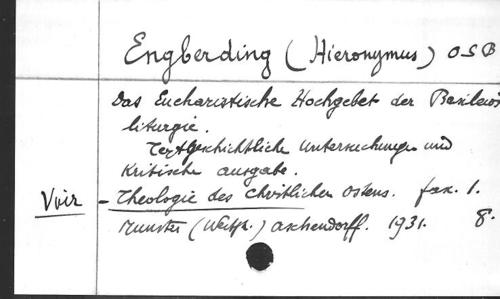 Engberding (Hieronymus) OSB
Das Eucharistische Hochgebet der Basileios
liturgie.
Textgeschichtliche Untersuchungen und
Kritische ausgabe.
Voir - Theologie des Christlichen Ostens. fax. 1.
Munster (Westf.) aschendorff. 1931. 8°